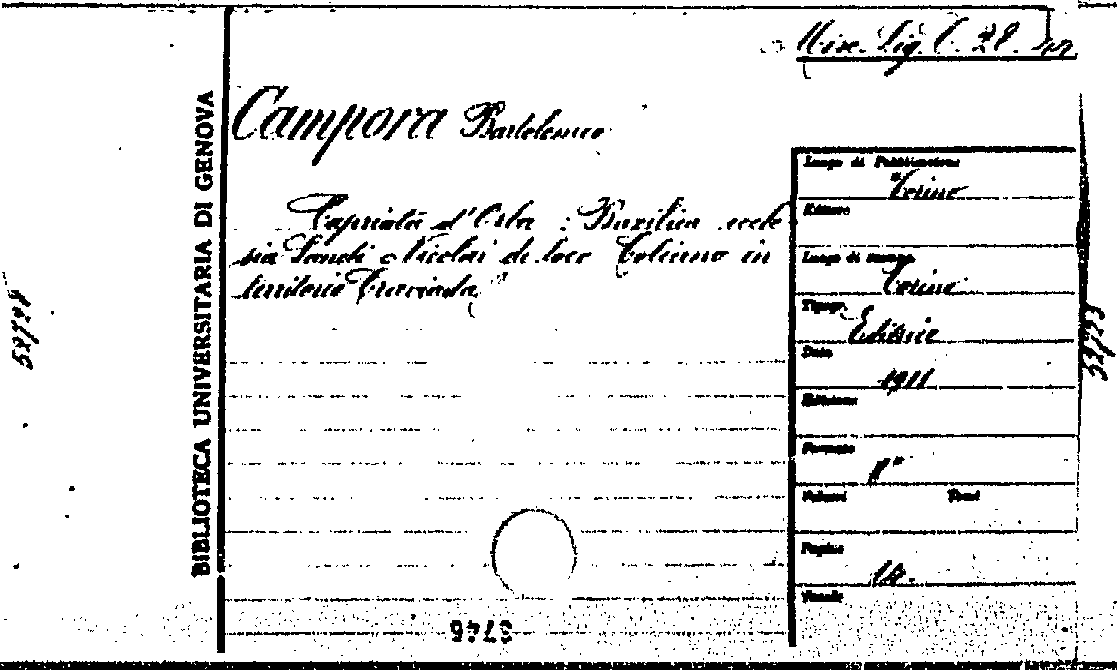 Misc. Lig. C. 28.
BIBLIOTECA UNIVERSITARIA DI GENOVA
Campora Bartolomeo
Capriata d'Orba : Baxilica eccle
sia Sancti Nicolai de loco
in
territorio
Luogo di Pubblicazione
Torino
Editore
Luogo di stampa
Torino
Tipogr.
Data
1911
Edizione
Formato
8°
Volumi Tomi
Pagine
Tavole
3746